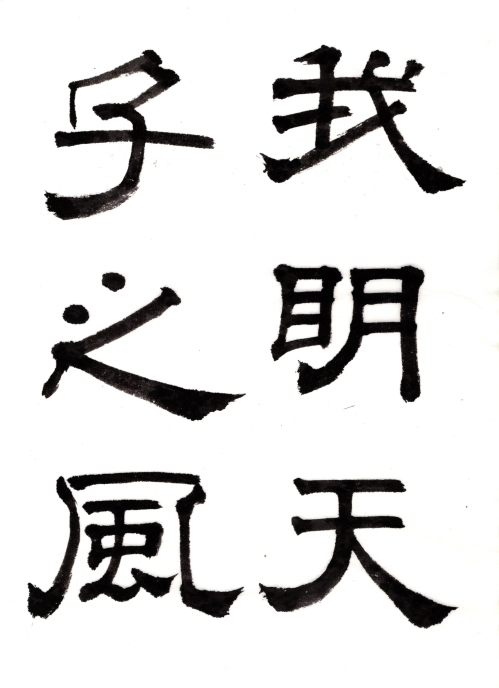 我明天
子之風